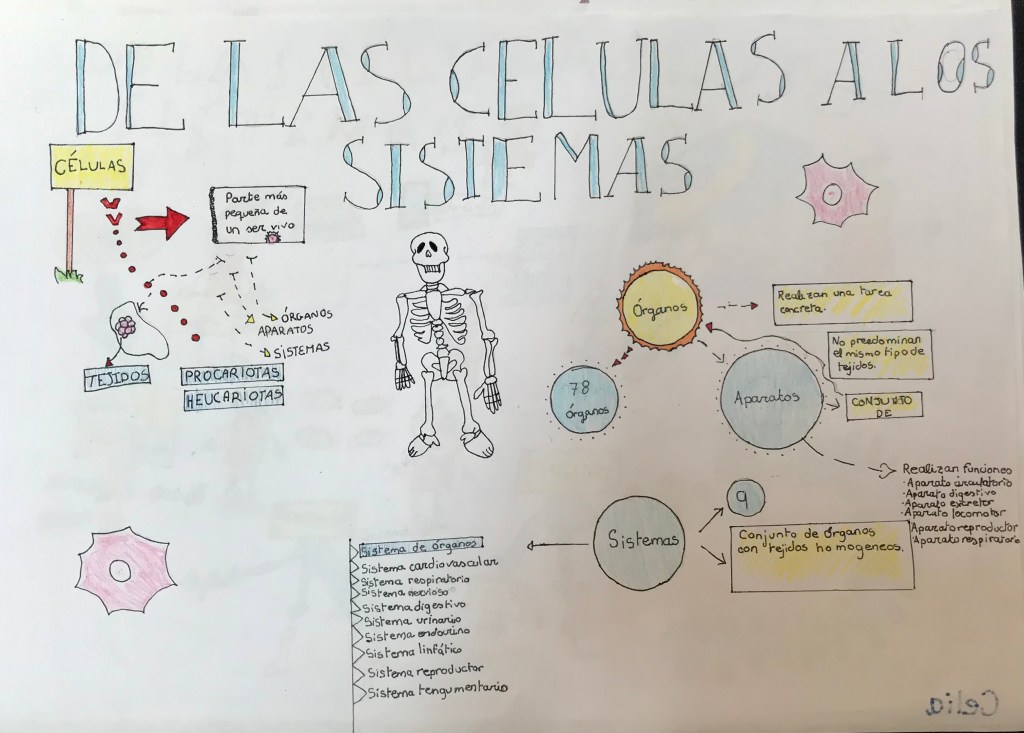 DE LAS CELULAS A LOS
SISTEMAS
CÉLULAS
Parte más
pequeña de
un ser vivo
ÓRGANOS
APARATOS
SISTEMAS
TEJIDOS
PROCARIOTAS
HEUCARIOTAS
Órganos
Realizan una tarea
concreta.
No predominan
el mismo tipo de
tejidos.
78
Órganos
Aparatos
CONJUNTO
DE
Realizan funciones
· Aparato circulatorio
· Aparato digestivo
· Aparato excretor
· Aparato locomotor
· Aparato reproductor
· Aparato respiratorio
9
Sistemas
Conjunto de Órganos
con tejidos homogeneos.
Sistema de órganos
Sistema cardiovascular
Sistema respiratorio
Sistema nervioso
Sistema digestivo
Sistema urinario
Sistema endocrino
Sistema linfático
Sistema reproductor
Sistema tengumentario
Celia